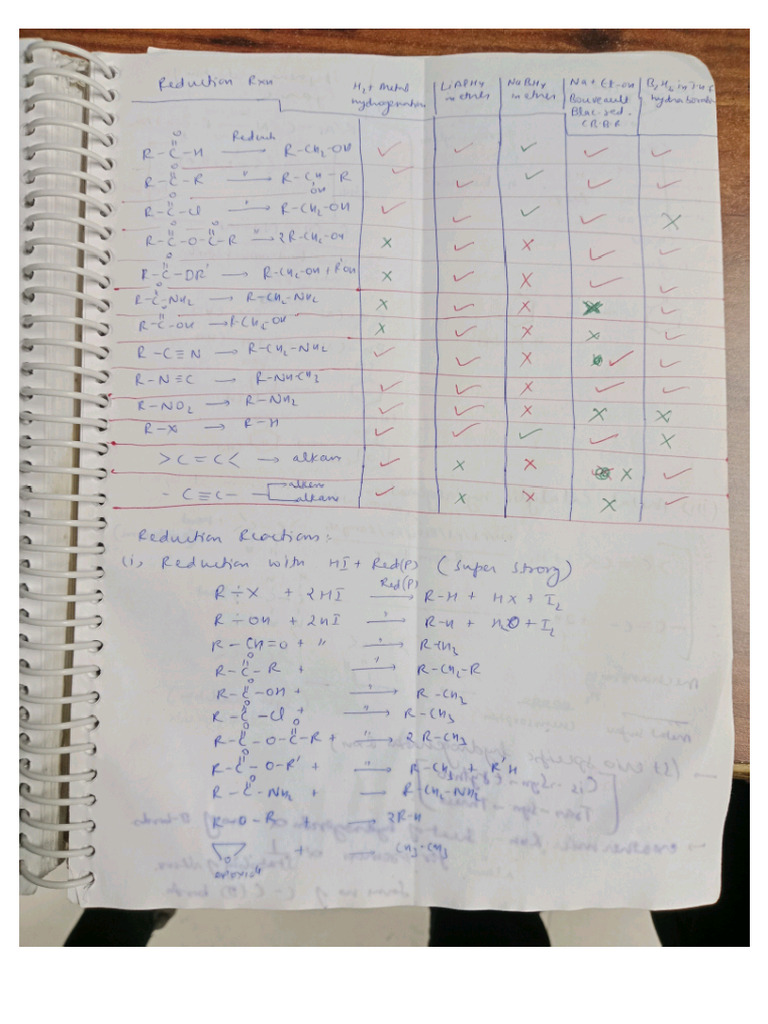 Reduction Rxn
H₂ + Metal hydrogenation
LiAlH₄ in ether
NaBH₄ in ether
Na + Et-OH Bouveault Blac. red. (B.B.R
B₂H₆ in T.H.F hydroboration
R-C(=O)-H → Reduct R-CH₂-OH ✓ ✓ ✓ ✓ ✓
R-C(=O)-R → " R-CH(OH)-R ✓ ✓ ✓ ✓ ✓
R-C(=O)-Cl → " R-CH₂-OH ✓ ✓ ✓ ✓ X
R-C(=O)-O-C(=O)-R → " 2R-CH₂-OH X ✓ X ✓ ✓
R-C(=O)-OR' → R-CH₂-OH + R'OH X ✓ X ✓ ✓
R-C(=O)-NH₂ → R-CH₂-NH₂ X ✓ X X ✓
R-C(=O)-OH → R-CH₂-OH X ✓ X X ✓
R-C≡N → R-CH₂-NH₂ ✓ ✓ X ✓ ✓
R-N≡C → R-NH-CH₂ ✓ ✓ X ✓ ✓
R-NO₂ → R-NH₂ ✓ ✓ X X X
R-X → R-H ✓ ✓ ✓ ✓ X
>C=C< → alkane ✓ X X X ✓
-C≡C- → alkene alkane ✓ X X X ✓
Reduction Reactions:-
(i) Reduction with HI + Red(P) (Super Strong)
R-X + 2HI → Red(P) R-H + HX + I₂
R-OH + 2HI → " R-H + H₂O + I₂
R-CH=O + " → " R-CH₂
R-C(=O)-R + → " R-CH₂-R
R-C(=O)-OH + → " R-CH₂
R-C(=O)-Cl + → " R-CH₃
R-C(=O)-O-C(=O)-R + → " 2R-CH₃
R-C(=O)-O-R' + → " R-CH₃ + R'H
R-C(=O)-NH₂ + → R-CH₂-NH₂
R-O-R + → 2R-H
epoxide + → CH₃-CH₃